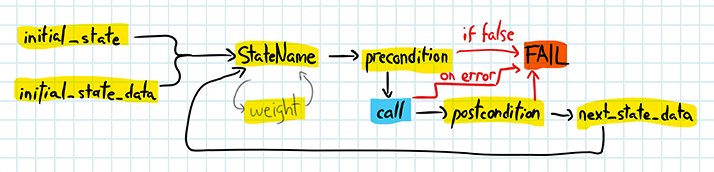 initial_state
initial_state_data
StateName
weight
precondition
if false
FAIL
on error
call
postcondition
next_state_data